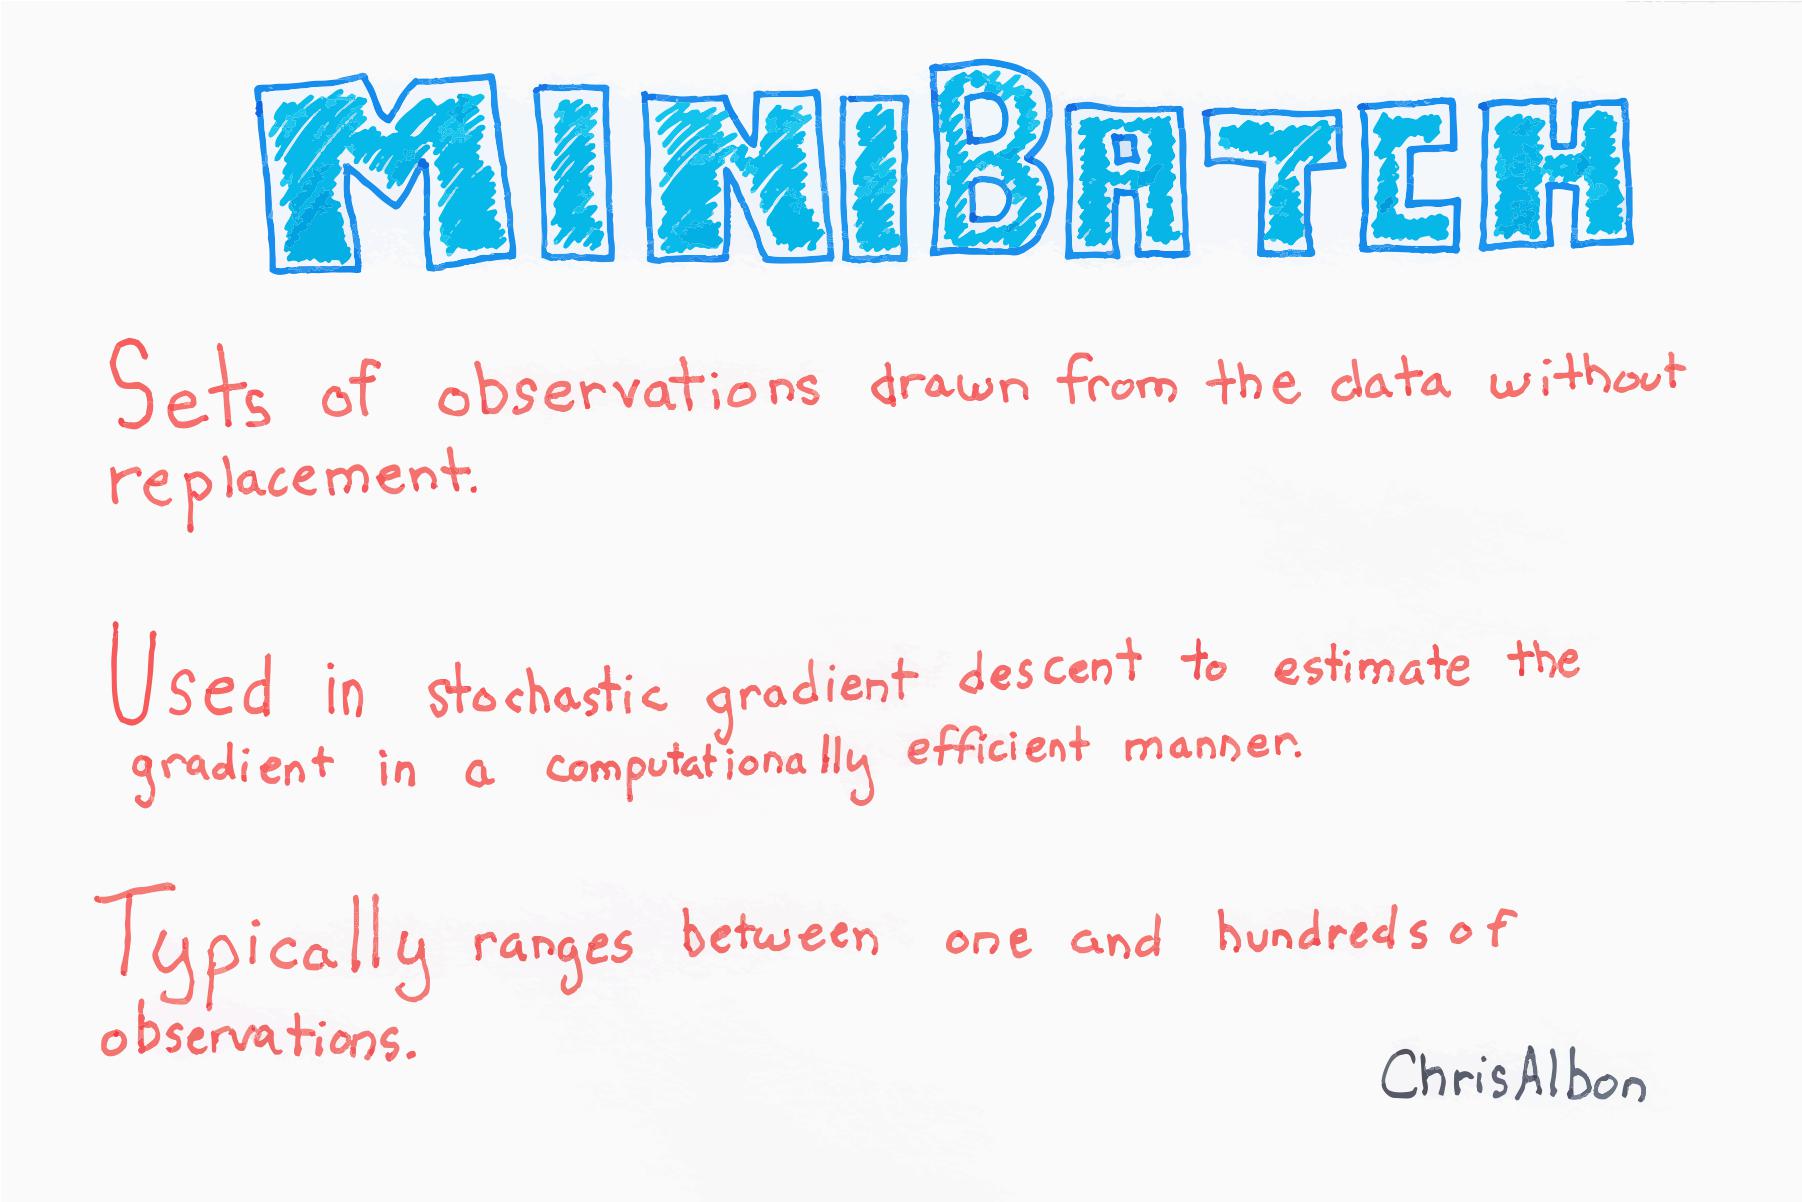 MINIBATCH
Sets of observations drawn from the data without
replacement.
Used in stochastic gradient descent to estimate the
gradient in a computationally efficient manner.
Typically ranges between one and hundreds of
observations.
ChrisAlbon